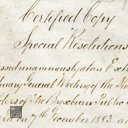 Certified Copy
Special Resolutions
passed unanimously at an Extra
ordinary General Meeting of the
of the
on the 7th December 1883 at